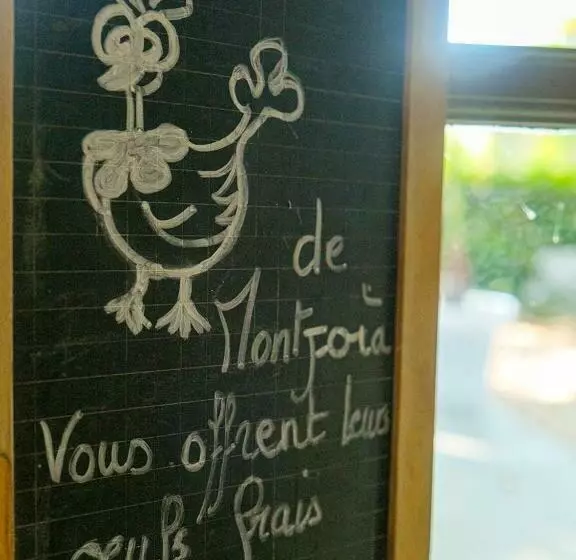 de
Montfoià
Vous offrent leurs
oeufs frais